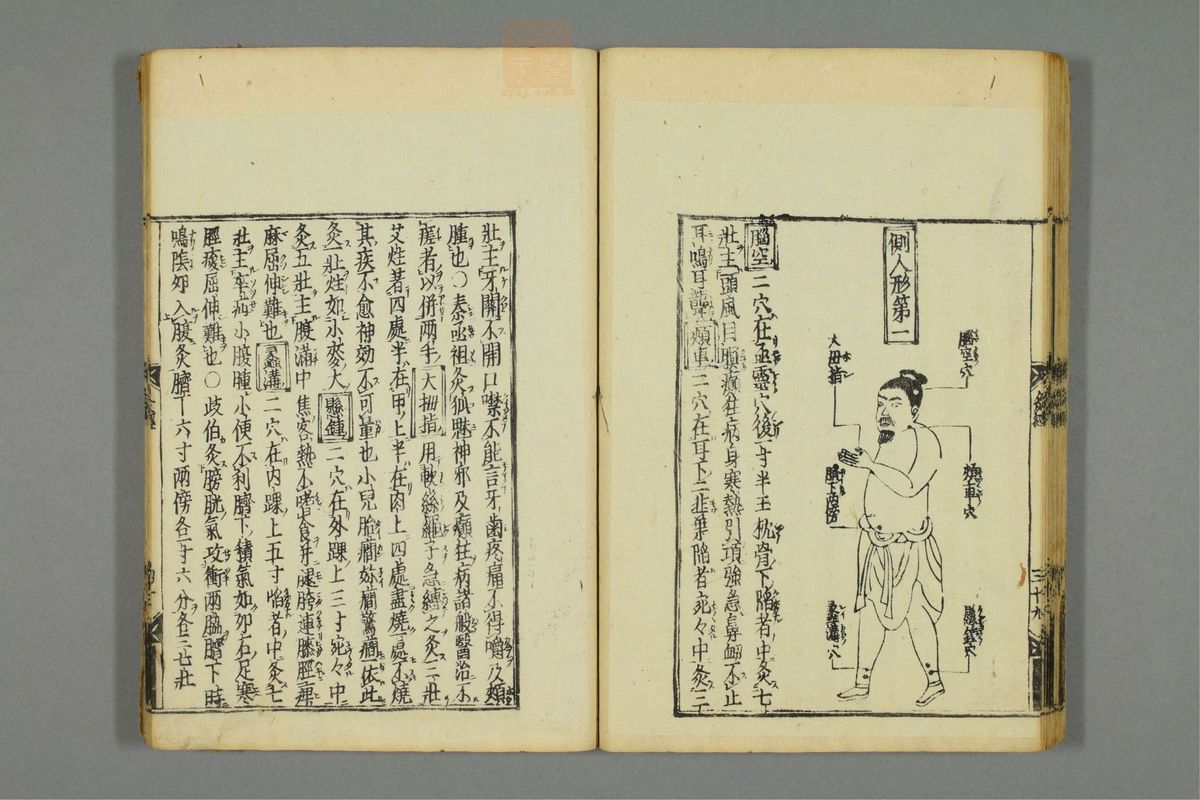 側人形第二
腦空穴
大拇指
頰車穴
臍下兩傍
懸鍾穴
蠡溝穴
腦空 二穴在承靈穴後一寸半玉枕骨下陷者中灸七
壯主頭風目瞑癲狂病身寒熱引項強急鼻衄不止
耳鳴耳聾 頰車 二穴在耳下二韭葉陷者宛々中灸三
壯主牙關不開口噤不能言牙齒疼痛不得嚼及頰
腫也○秦丞祖灸狐魅神邪及癲狂病諸般醫治不
瘥者以併兩手 大拇指 用軟絲繩子急縛之灸三壯
艾炷著四處半在甲上半在肉上四處盡燒一處不燒
其疾不愈神効不可量也小兒胎癇妳癇驚癇依此
灸一壯炷如小麥大 懸鍾 二穴在外踝上三寸宛々中
灸五壯主腹滿中焦客熱不嗜食并腿胯連膝脛痺
麻屈伸難也 蠡溝 二穴在内踝上五寸陷者中灸七
壯主卒疝小腹腫小便不利臍下積氣如卵石足寒
脛痠屈伸難也○歧伯灸膀胱氣攻衝兩脇臍下時
鳴陰卵入腹灸臍下六寸兩傍各一寸六分各三七壯
zysj.com.cn